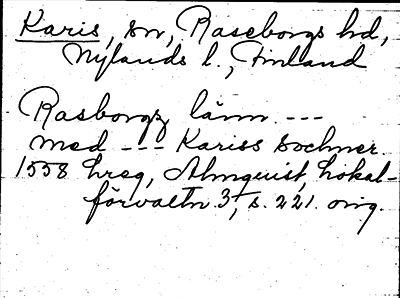 Karis, sn, Raseborgs hd,
Nylands l., Finland
Rasborgz länn ---
med --- Kariss sochner.
1558 hreg, Almquist, Lokal-
förvaltn. 3, s. 221. orig.